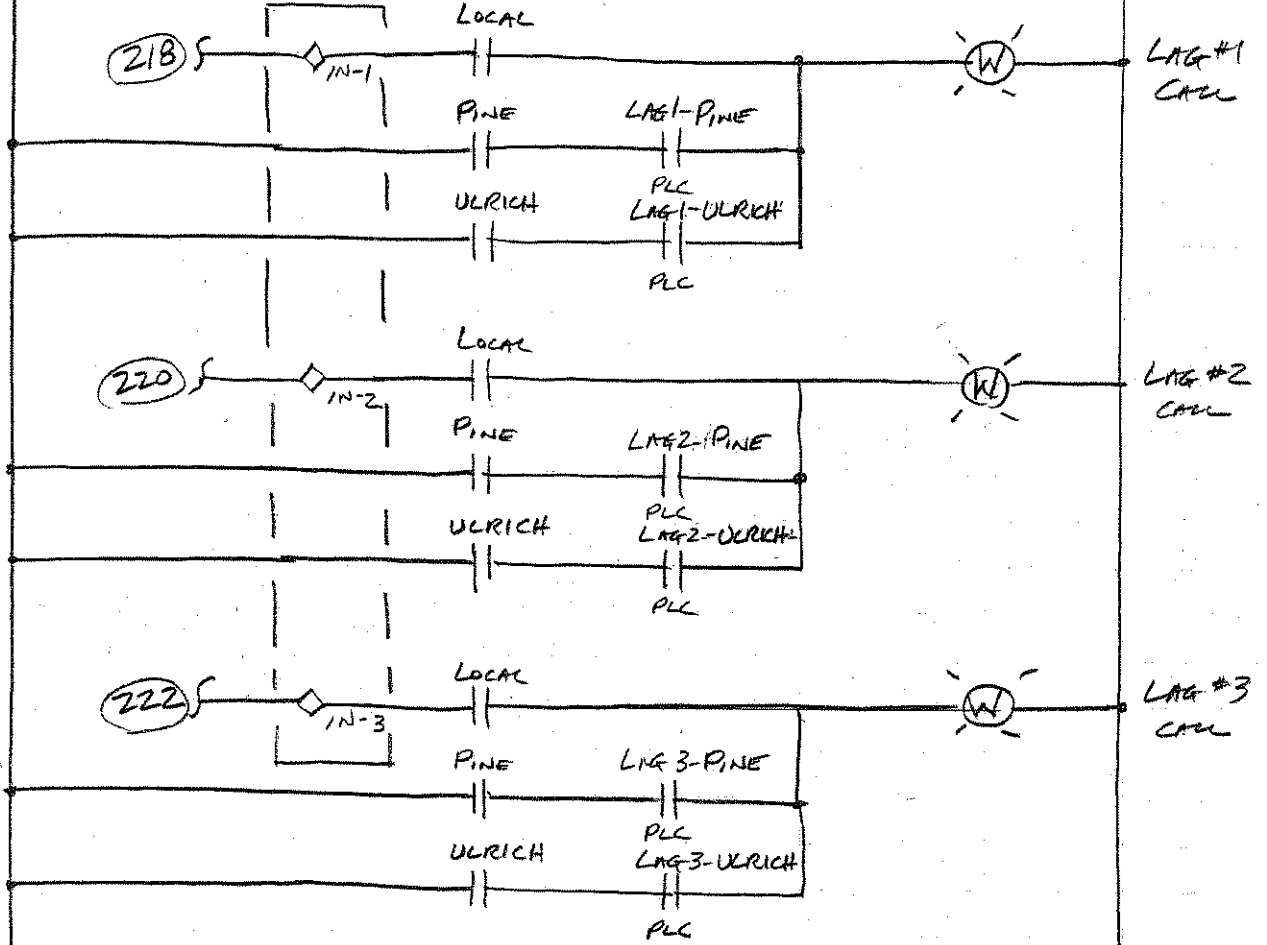 LOCAL
218
IN-1
W
LAG #1
CALL
PINE
LAG1-PINE
PLC
ULRICH
LAG1-ULRICH
PLC
LOCAL
220
IN-2
W
LAG #2
CALL
PINE
LAG2-PINE
PLC
ULRICH
LAG2-ULRICH
PLC
LOCAL
222
IN-3
W
LAG #3
CALL
PINE
LAG3-PINE
PLC
ULRICH
LAG-3-ULRICH
PLC